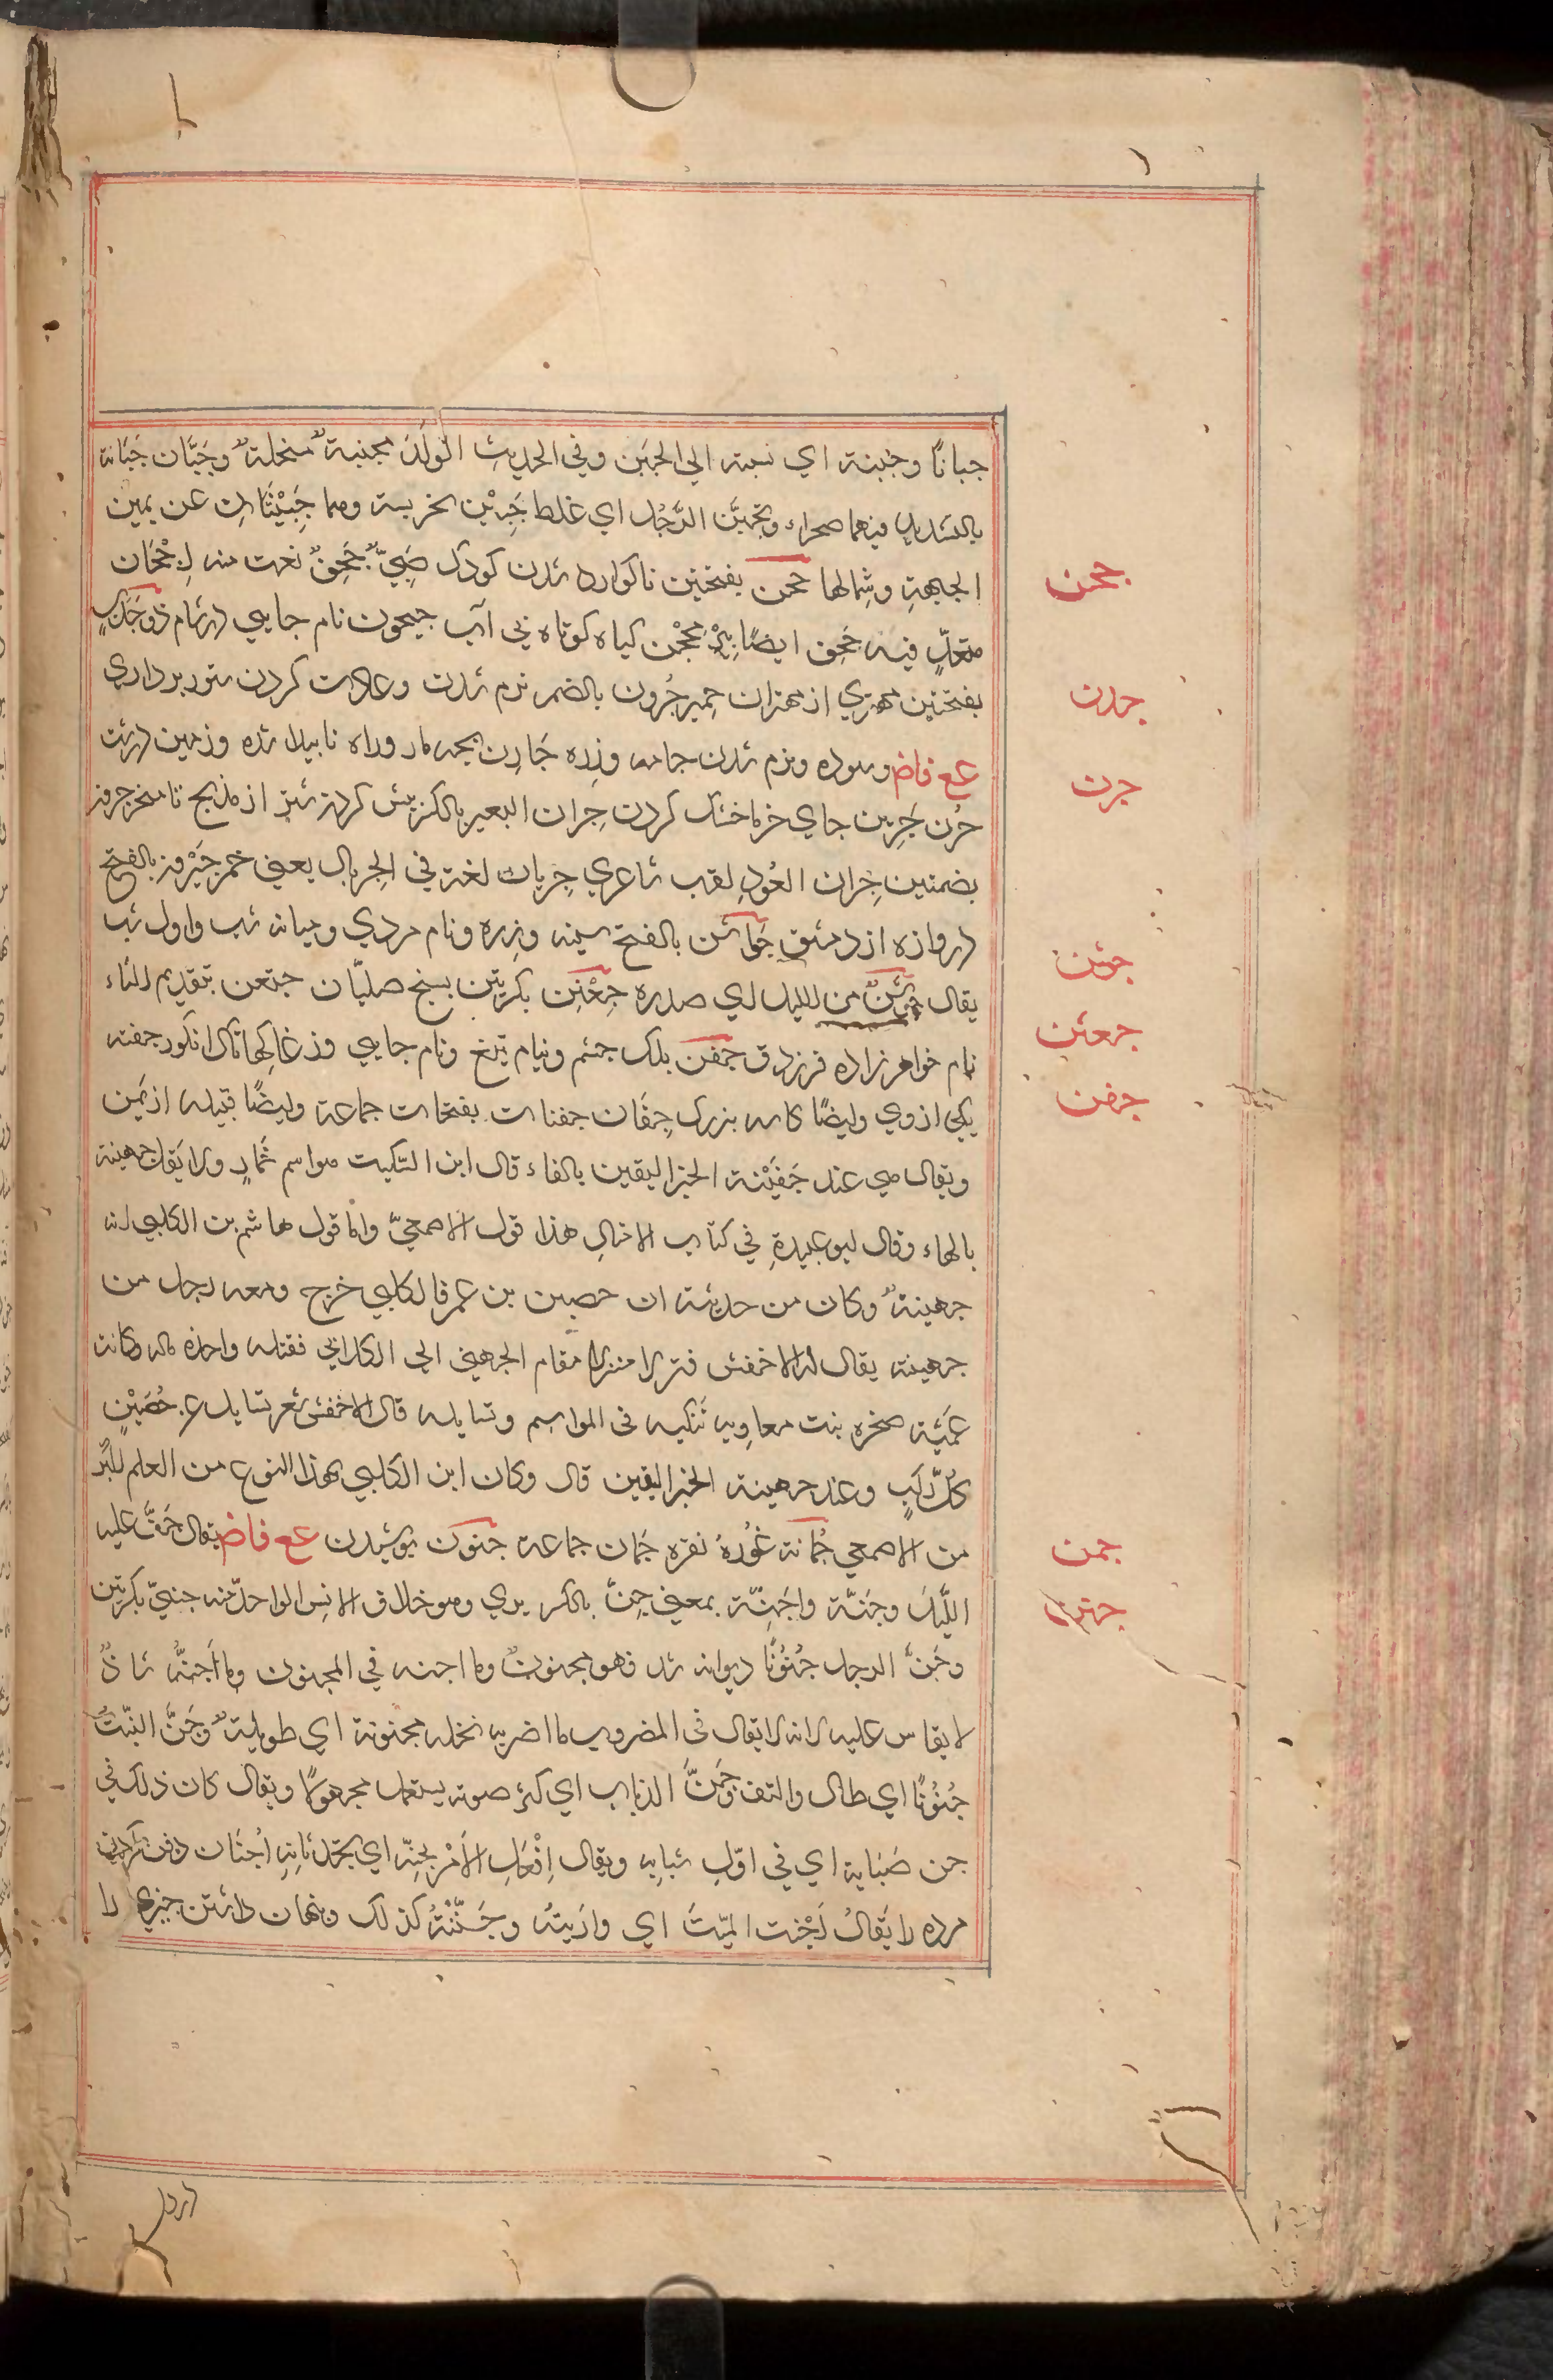 جبانًا وجبنة اي نسبة الي الجبن وفي الحديث الولد مجنبة منخلة وجَبَّان جَبّانة
بالتشديد فيهما صحراء وتجبّن الرَّجُل اي غلظ جَبِيْن وهما جَبِيْنَان عن يمين
الجبهةِ وشِمالها جحن بفتحتين ناكوارد شدن كودك صَبِيٌّ جَحِنٌ نعت منه
جحن
فيه جَحِن ايضًا گياه كوتاه بي آب جيحون نام جايي در شام ذو جَدَنٍ
بفتحتين مهتري از مهتران حِمير جُرون بالضم نرم شدن وعادت كردن ستور بر داري
جدن
عع فاض وسوده ونرم شدن جامه وزره جَارِن بچه مار وراه نابيدا شده وزمين درشت
جرن
جُرن جَرِين جاي خرما خشك كردن جِران البعير بالكسر پيش كردن شتر از مذبح تا منحر جرن
بضمتين جِران العُودِ لقب شاعري جِريان لغة في الجِريال يعني خمر جَيْرون بالفتح
دروازه از دمشق جَوشَن بالفتح سينه وزره ونام مردي وميانه شب واول شب
جوشن
يقال من الليل اي صدره جِعْثِن بكسرتين بيخ صلّيان جتعن بتقديم التاء
جعثن
نام خواهرزاده فرزدق جفن پلك چشم ونيام تيغ ونام جايي وزغاكهاتاك انكور جفنه
جفن
يكي از وي وايضًا كاسه بزرك جِفَان جفنات بفتحات جماعة وايضًا قبيله از يَمَن
ويقال هي عند جَفَيْنة الخبر اليقين بالفاء قال ابن السّكيت هو اسم خمارٍ ولا يقال جهينة
بالهاء وقال ابو عبيدةِ في كتاب الامثال هذا قول الاصمعيّ واما قول هاشم بن الكلبي انه
جهينةٌ وكان من حديثه ان حصين بن عمرو الكلبي خرج ومعه رجل من
جهينه يقال له الاخفش فنزلا منزلا فقام الجهني الي الكلابي فقتله واخذه ماله وكانت
عَمَّته صخره بنت معاويه تَبكيه في المواسم وتسايله قال الاخفش شعر تسايل عن حُصَيْنٍ
كلَّ رَكبٍ وعند جهينة الخبر اليقين قال وكان ابن الكلبي بهذا النوع من العلم اكبر
من الاصمعي جُمانة غُورهٔ نقره جُمان جماعة جنون پوشيدن عع فاض يقال جَنَّ عليه
جمن
اللّيلُ وجنَّهٗ واجَنّهٗ بمعني جِنّ بالكسر پري وهو خلاف الانس الواحد منه جنيّ بكسرتين
جنن
وجُنَّ الرجل جُنُونًا ديوانه شد فهو مجنونٌ وما اجنه في المجنون وما اَجَنَّهٗ شاذٌ
لا يقاس عليه لانه لا يقال في المضروب ما اضربه نخله مجنونة اي طويلةٌ وجَنَّ النَّبْتُ
جُنُونًا اي طال والتف وجُنَّ الذباب اي كثر صوته يستعمل مجهولًا ويقال كان ذلك في
جن صَبَايه اي في اوّلِ شَبابِه ويقال اِفْعَلِ الاَمْرَ بجِنّه اي بحَدثانه اِجْنَان دفن كردن
مرده را يقالُ اَجْنَنت الميّتَ اي وارَيتهٗ وجَنَنْتُهٗ كذلك وپنهان داشتن چيزي را
درول